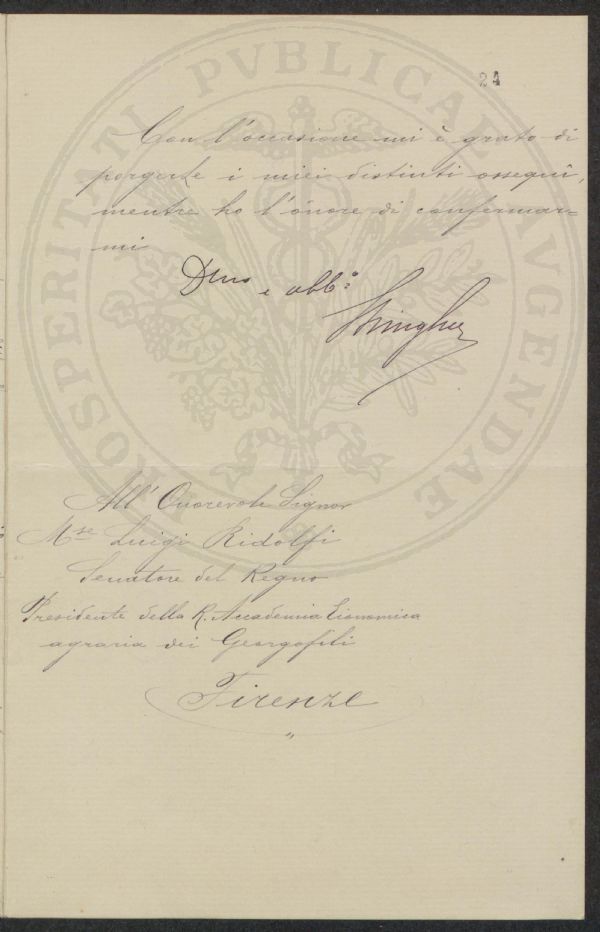 24
Con l'occasione mi è grato di
porgerle i miei distinti ossequi,
mentre ho l'onore di confermar=
mi
Dmo e obbo:
Stringher
All' Onorevole Signor
Mse Luigi Ridolfi
Senatore del Regno
Presidente della R. Accademia Economica
agraria dei Georgofili
Firenze
"
PROSPERITATI PVBLICAE AVGENDAE